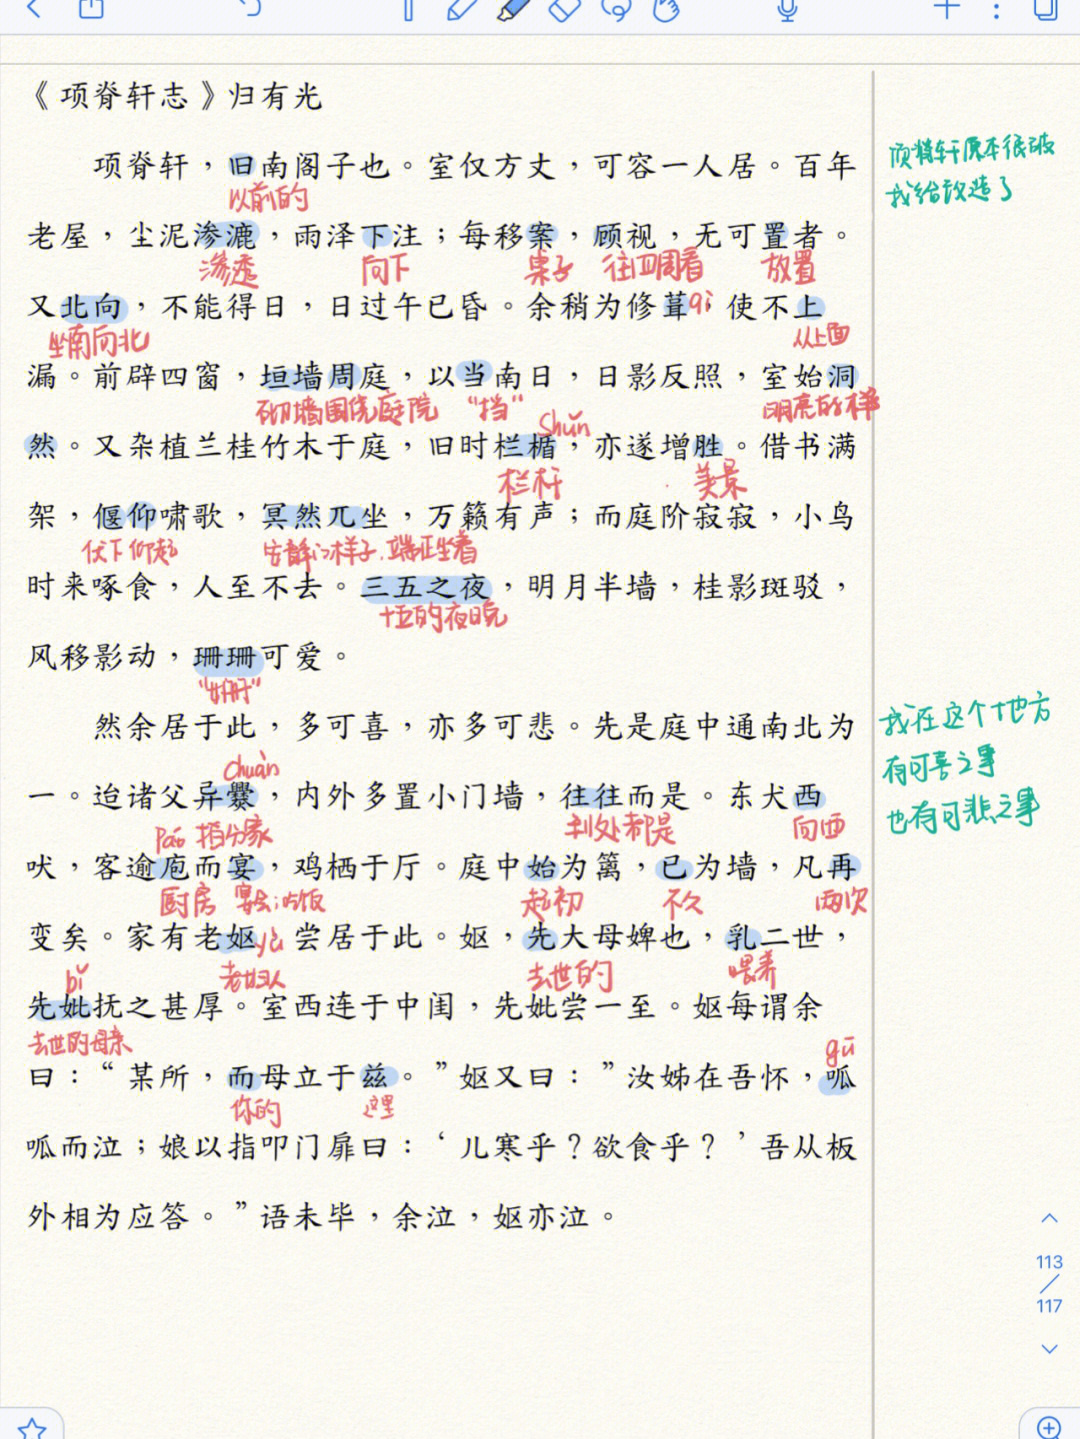 《项脊轩志》归有光
项脊轩，旧南阁子也。室仅方丈，可容一人居。百年
以前的
项脊轩原本很破
我给改造了
老屋，尘泥渗漉，雨泽下注；每移案，顾视，无可置者。
渗透 向下 桌子 往四周看 放置
又北向，不能得日，日过午已昏。余稍为修葺，使不上
qì
坐南向北 从上面
漏。前辟四窗，垣墙周庭，以当南日，日影反照，室始洞
砌墙围绕庭院 “挡” 明亮的样
shǔn
然。又杂植兰桂竹木于庭，旧时栏楯，亦遂增胜。借书满
栏杆 美景
架，偃仰啸歌，冥然兀坐，万籁有声；而庭阶寂寂，小鸟
伏下 仰起 安静的样子.端正坐着
时来啄食，人至不去。三五之夜，明月半墙，桂影斑驳，
十五的夜晚
风移影动，珊珊可爱。
“姗姗”
然余居于此，多可喜，亦多可悲。先是庭中通南北为
我在这个地方
有可喜之事
也有可悲之事
chuàn
一。迨诸父异爨，内外多置小门墙，往往而是。东犬西
páo 指分家 到处都是 向西
吠，客逾庖而宴，鸡栖于厅。庭中始为篱，已为墙，凡再
厨房 宴会;吃饭 起初 不久 两次
变矣。家有老妪，尝居于此。妪，先大母婢也，乳二世，
yù
bǐ 老妇人 去世的 喂养
先妣抚之甚厚。室西连于中闺，先妣尝一至。妪每谓余
去世的母亲
gū
曰：“某所，而母立于兹。”妪又曰：”汝姊在吾怀，呱
你的 这里
呱而泣；娘以指叩门扉曰：‘儿寒乎？欲食乎？’吾从板
外相为应答。”语未毕，余泣，妪亦泣。
113
/
117